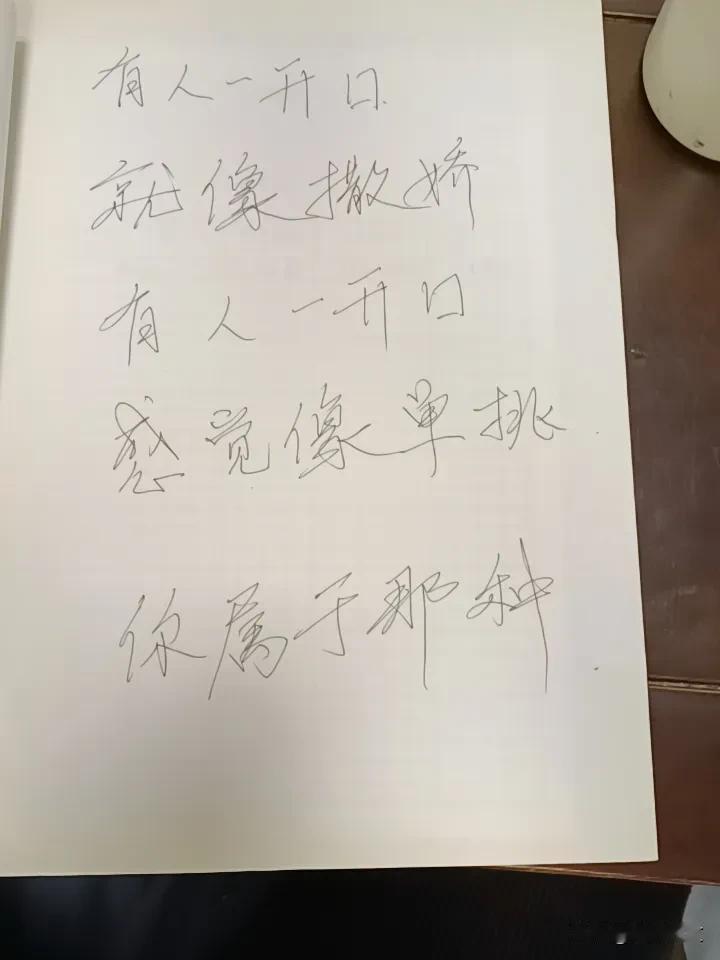 有人一开口
就像撒娇
有人一开口
感觉像单挑
你属于那种